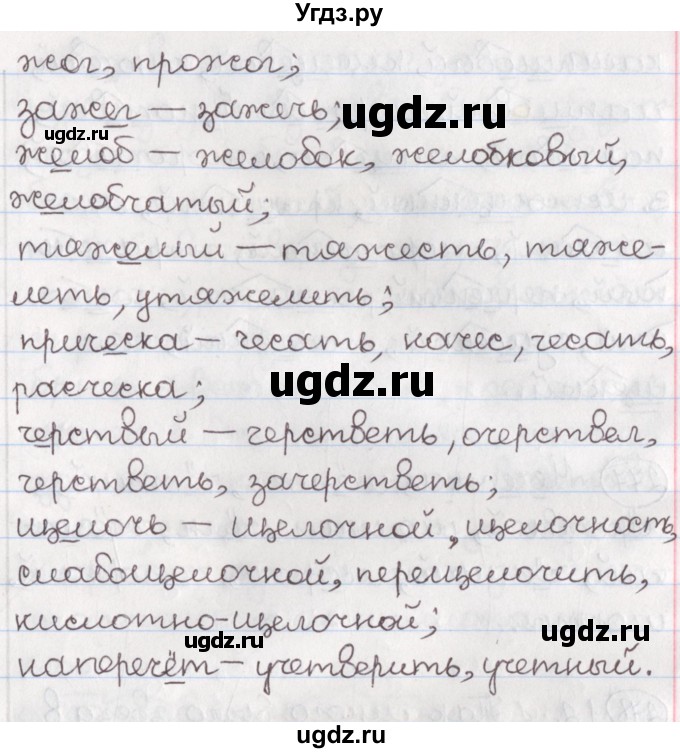 Угдз.ру
жог, прожог;
зажег – зажечь;
ugdz.ru
ugdz.ru
желоб – желобок, желобковый,
желобчатый;
ugdz.ru
ugdz.ru
тяжелый – тяжесть, тяже-
леть, утяжелить;
прическа – чесать, начес, чесать,
расческа;
ugdz.ru
ugdz.ru
черствый – черстветь, очерствел,
черстветь, зачерстветь;
щелочь – щелочной, щелочность,
слабощелочной, перещелочить,
кислотно-щелочной;
ugdz.ru
ugdz.ru
наперечёт – учетверить, учетный.
ugdz.ru
ugdz.ru